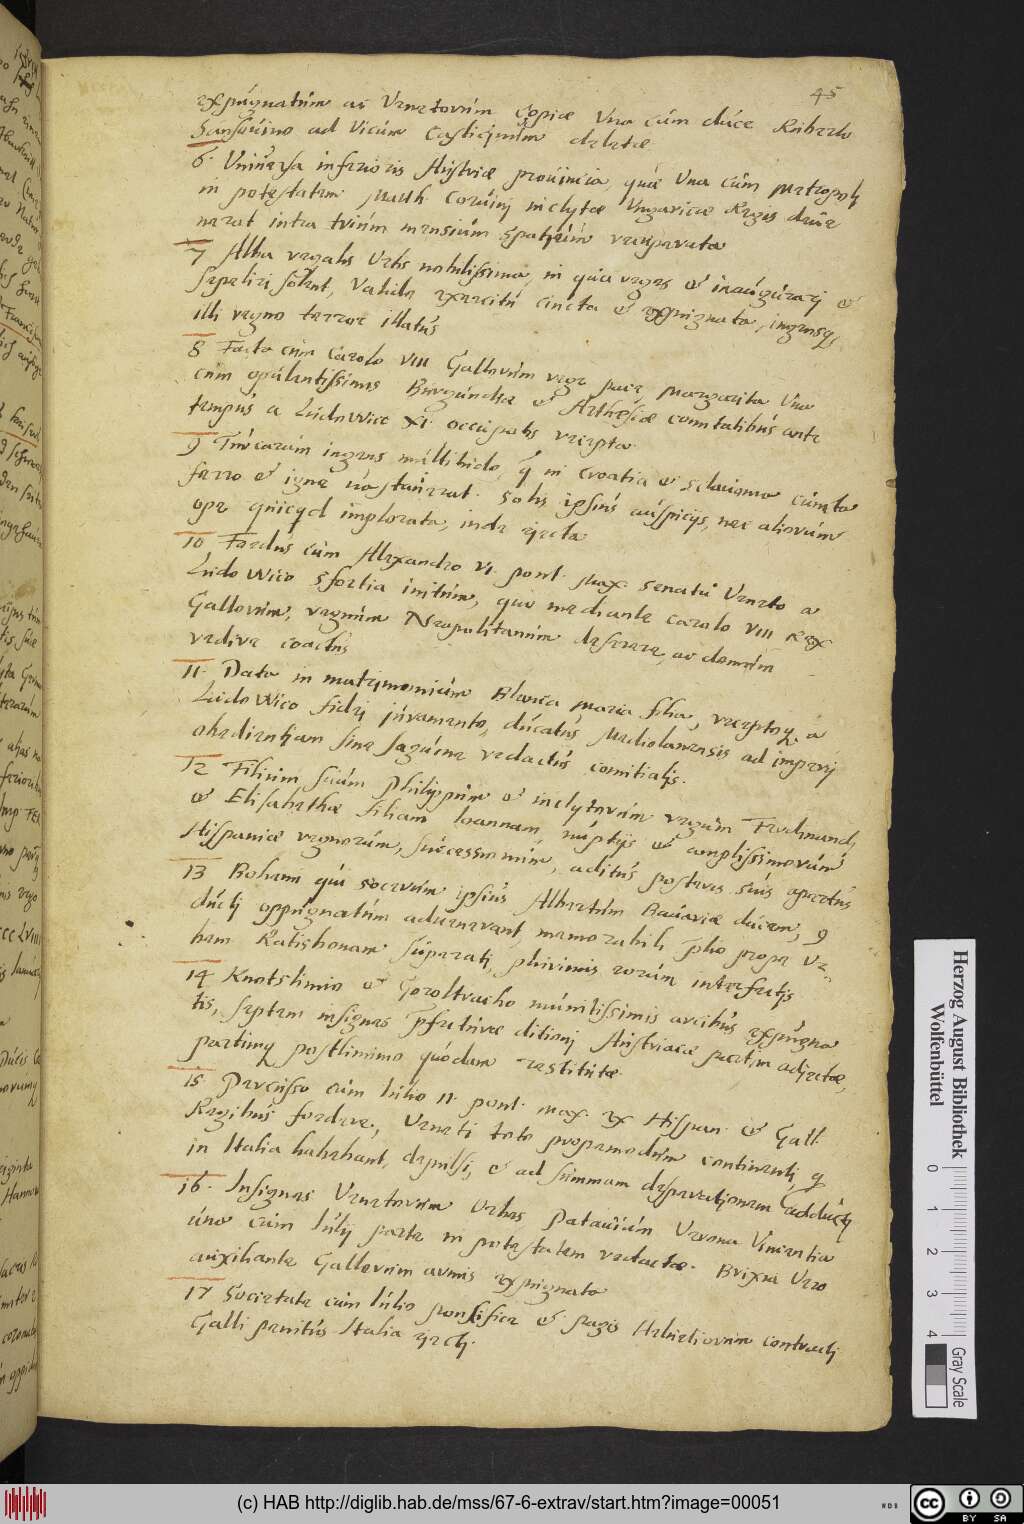 45
expugnatum ac Venetorum copiae una cum duce Ruberto
Sanseuino ad vicum Castiliquium deletae
6. Vniuersa inferioris Austriae prouincia, quae Vna cum metropoli
in potestatem Math. Coruini inclytae Vngaricae Regis deue
nerat intra trium mensium spatium recuperata
7 Alba regalis Vrbs nobilissima, in qua reges et inaugurari et
sepeliri solent, valido exercitu cincta et expugnata, ingensq
illi regno terror illatus
8 Facta cum Carolo VIII Gallorum rege pace Margarita Vna
cum opulentissimis Burgundiae et Arthesiae comitatibus ante
tempus a Ludowico XI. occupatis recepta.
9 Turcarum ingens multitudo, q in Croatia et Sclauonia cuncta
ferro et igne uastauerat. solis ipsius auspicijs, nec aliorum
ope quicqd implorata, inde ejecta
10 Foedus cum Alexandro VI pont. Max. senatu Veneto a
Ludowico Sfortia initum, quo mediante Carolo VIII Rex
Gallorum, regnum Neapolitanum deserere, ac domum
redire coactus
11. Data in matrimonium Blanca Maria filia, receptoq a
Ludowico fidei juramento, ducatus Mediolanensis ad imperij
obedientiam sine sanguine redactus comitialis.
12 Filium suum Philippum et inclytorum regum Ferdinandi,
et Elisabethae filiam Ioannam nuptijs et amplissimorum
Hispaniae regnorum, successionum, aditus posteris suis apertus
13 Bohemi qui socerum ipsius Albertum Bauariae ducem, 9
ducti oppugnatum aduenerant, memorabili plio prope Vr-
bem Ratisbonam superati, plurimis eorum interfectis
14 Knofstimio et Geroltzecho munitissimis arcibus expugna
tis, septem insignes pfecturae ditioni Austriacae partim adjectae,
partimq postliminio quodam restitutae
15. Percusso cum Iulio II. pont. max. ex Hispan. et Gall.
Regibus foedere, Veneti toto propemodum continenti, q
in Italia habebant, depulsi, et ad summam desperationem adducti
16. Insignes Venetorum Vrbes Patauium Verona Vincentia
una cum Iulij parte in potestatem redactae. Brixia Vero
auxiliante Gallorum armis expugnata
17 Societate cum Iulio pontifice et pagis Heluetiorum contracti
Galli penitus Italia ejecti.
Herzog August Bibliothek
Wolfenbüttel
0 1 2 3 4
Gray Scale
(c) HAB http://diglib.hab.de/mss/67-6-extrav/start.htm?image=00051
WDB
cc BY SA